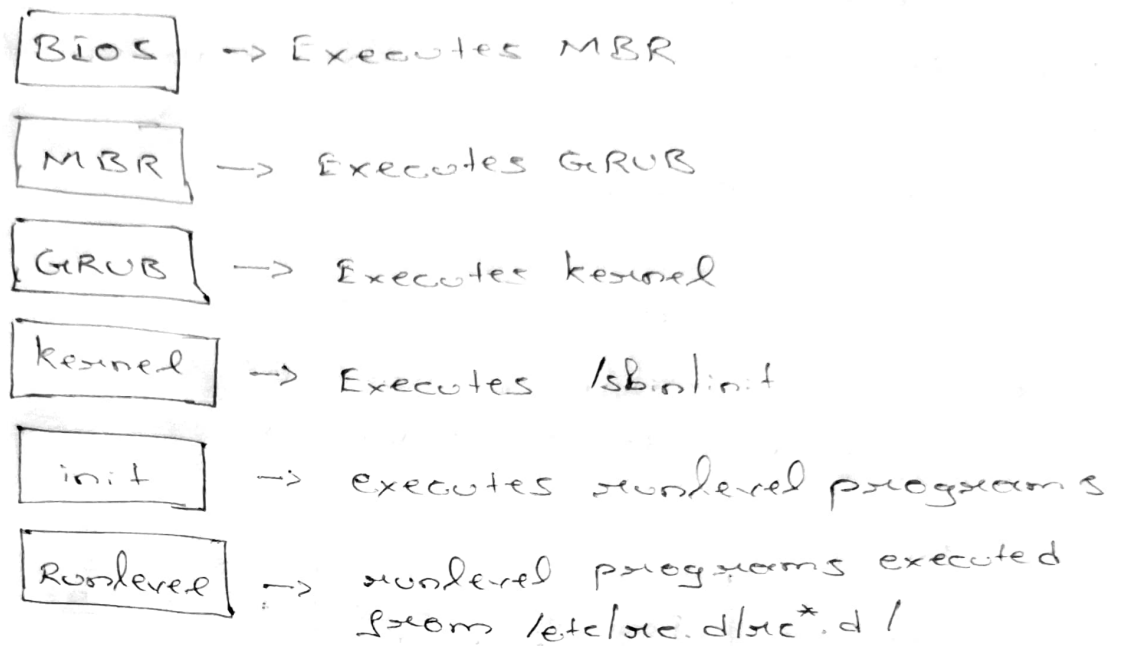 BIOS -> Executes MBR
MBR -> Executes GRUB
GRUB -> Executes kernel
kernel -> Executes /sbin/init
init -> executes runlevel programs
Runlevel -> runlevel programs executed
from /etc/rc.d/rc*.d/